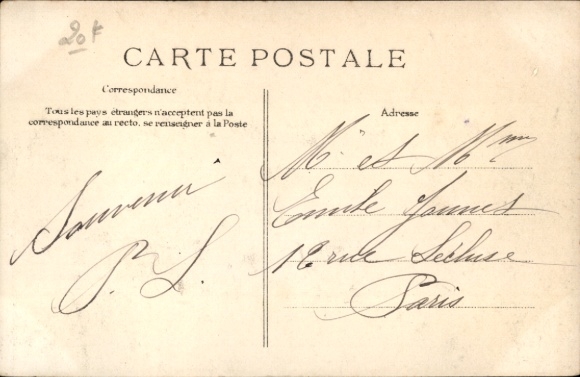 20 F
CARTE POSTALE
Correspondance
Tous les pays étrangers n'acceptent pas la
correspondance au recto, se renseigner à la Poste
Souvenir
P. L.
Adresse
Mr et Mme
Emile
12 rue Lécluse
Paris